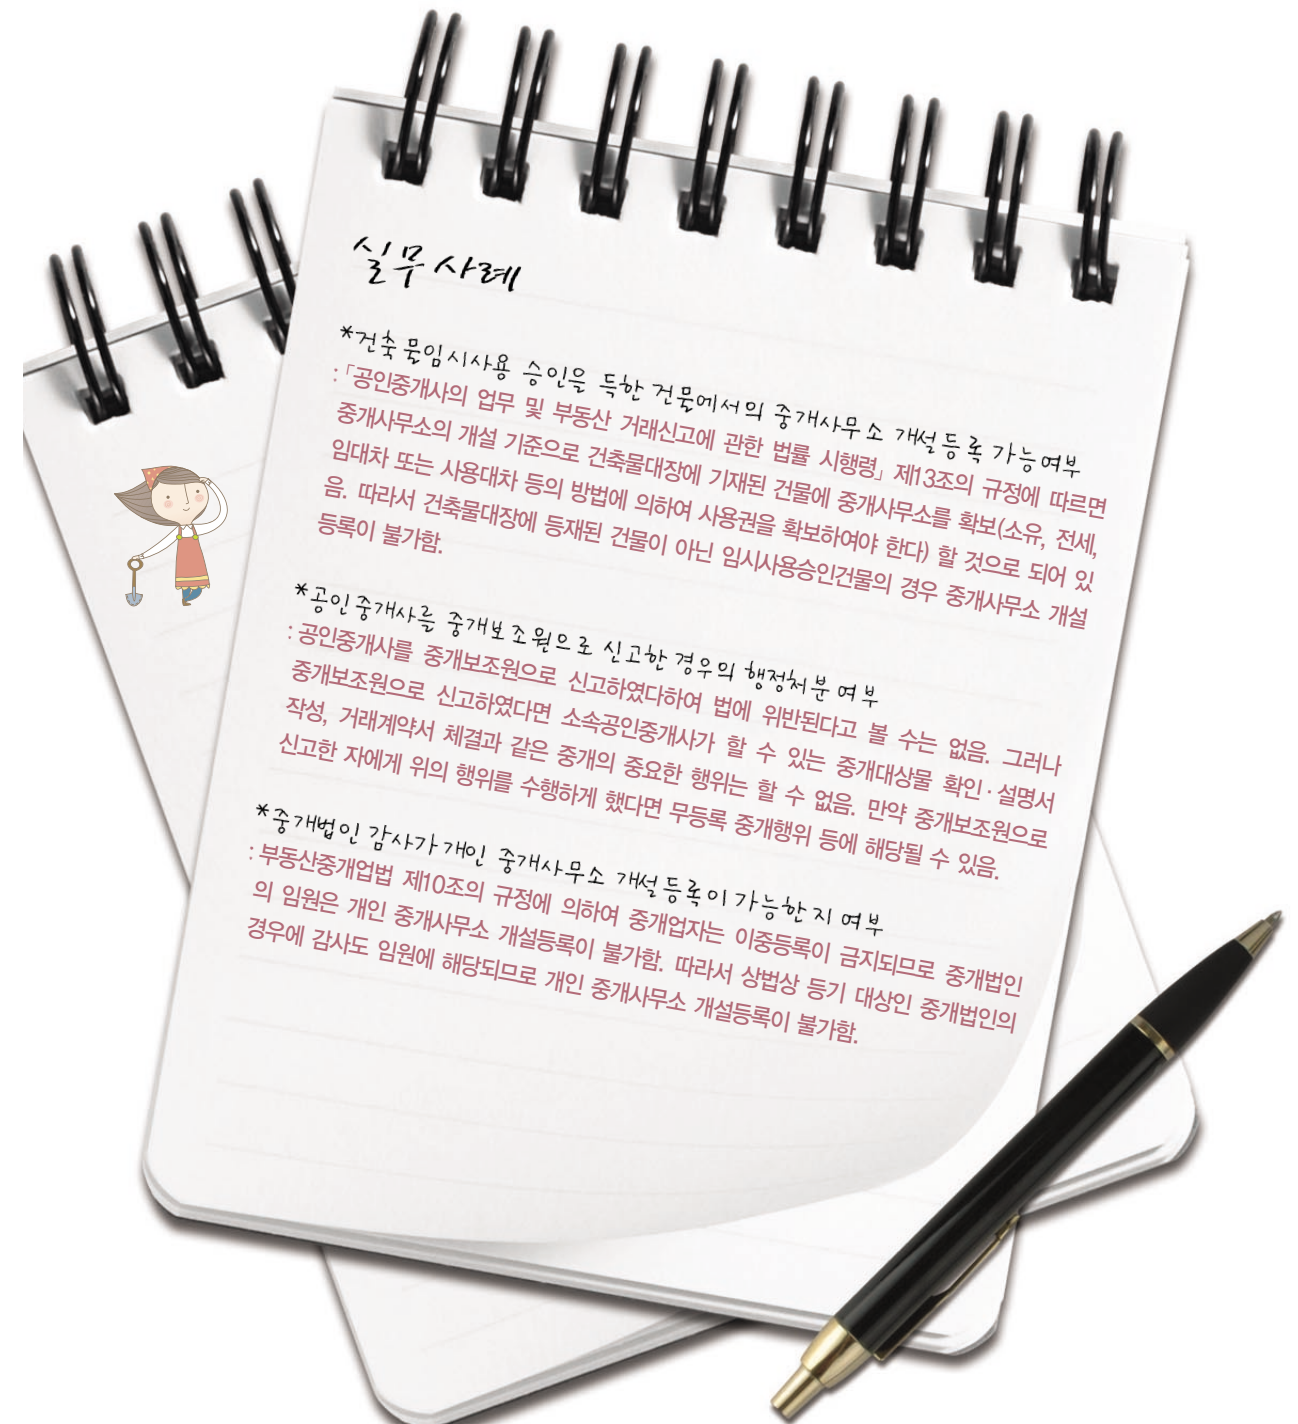 실무사례
*건축물임시사용 승인을 득한 건물에서의 중개사무소 개설등록 가능여부
: 「공인중개사의 업무 및 부동산 거래신고에 관한 법률 시행령」 제13조의 규정에 따르면
중개사무소의 개설 기준으로 건축물대장에 기재된 건물에 중개사무소를 확보(소유, 전세,
임대차 또는 사용대차 등의 방법에 의하여 사용권을 확보하여야 한다) 할 것으로 되어 있
음. 따라서 건축물대장에 등재된 건물이 아닌 임시사용승인건물의 경우 중개사무소 개설
등록이 불가함.
*공인중개사를 중개보조원으로 신고한 경우의 행정처분 여부
: 공인중개사를 중개보조원으로 신고하였다하여 법에 위반된다고 볼 수는 없음. 그러나
중개보조원으로 신고하였다면 소속공인중개사가 할 수 있는 중개대상물 확인·설명서
작성, 거래계약서 체결과 같은 중개의 중요한 행위는 할 수 없음. 만약 중개보조원으로
신고한 자에게 위의 행위를 수행하게 했다면 무등록 중개행위 등에 해당될 수 있음.
*중개법인 감사가 개인 중개사무소 개설등록이 가능한지 여부
: 부동산중개업법 제10조의 규정에 의하여 중개업자는 이중등록이 금지되므로 중개법인
의 임원은 개인 중개사무소 개설등록이 불가함. 따라서 상법상 등기 대상인 중개법인의
경우에 감사도 임원에 해당되므로 개인 중개사무소 개설등록이 불가함.